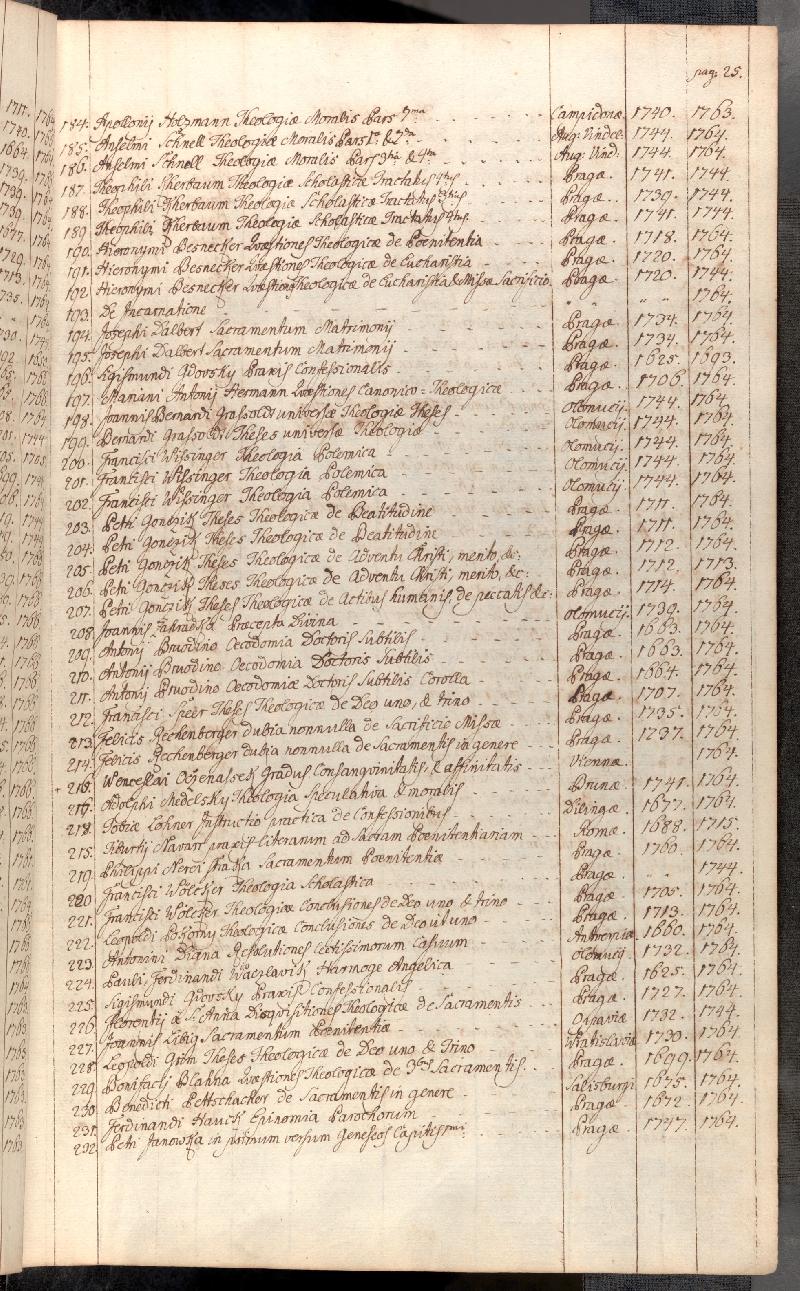 pag: 25.
184. Apollonij Holzmann Theologiæ Moralis Pars 7ma Campidonæ. 1740. 1763.
185. Anselmi Schnell Theologiæ Moralis Pars 1a & 2da Aug: Vindel: 1744. 1764.
186. Anselmi Schnell Theologiæ Moralis Pars 3tia & 4ta Aug: Vind: 1744. 1764.
187. Theophili Scherbaum Theologiæ Scholasticæ Tractatus 4tus Pragæ. 1741. 1744.
188. Theophili Scherbaum Theologiæ Scholasticæ Tractatus Pragæ. 1739. 1744.
189. Theophili Scherbaum Theologiæ Scholasticæ Tractatus 4tus. Pragæ. 1741. 1744.
190. Hieronymi Besnecker Quæstiones Theologicæ de Poenitentia Pragæ. 1718. 1764.
191. Hieronymi Besnecker Quæstiones Theologicæ de Eucharistia Pragæ. 1720. 1764.
192. Hieronymi Besnecker Quæstiones Theologicæ de Eucharistia & Missæ Sacrificio. Pragæ. 1720. 1744.
193. De Incarnatione " " " " 1764.
194. Josephi Dalbert Sacramentum Matrimonij Pragæ. 1734. 1764.
195. Josephi Dalbert Sacramentum Matrimonij Pragæ. 1734. 1764.
196. Sigismundi Gdovsky Praxis Confessionalis Pragæ. 1625. 1693.
197. Mariani Antonij Hermann Quæstiones Canonico-Theologicæ Pragæ. 1706. 1764.
198. Joannis Bernardi Grassoldt universæ Theologiæ Theses Olomucij. 1744. 1764.
199. Bernardi Grassoldt Theses universæ Theologiæ Olomucij. 1744. 1764.
200. Francisci Wissinger Theologia Polemica Olomucij. 1744. 1764.
201. Francisci Wissinger Theologia Polemica Olomucij. 1744. 1764.
202. Francisci Wissinger Theologia Polemica Olomucij. 1744. 1764.
203. Petri Gonczik Theses Theologicæ de Beatitudine Pragæ. 1711. 1764.
204. Petri Gonczik Theses Theologicæ de Beatitudine Pragæ. 1711. 1764.
205. Petri Gonczik Theses Theologicæ de Adventu Christi, merito, &c: Pragæ. 1712. 1764.
206. Petri Gonczik Theses Theologicæ de Adventu Christi, merito, &c: Pragæ. 1712. 1713.
207. Petri Gonczik Theses Theologicæ de Actibus humanis, de peccatis &c: Pragæ. 1714. 1764.
208. Joannis Præcepta Divina Olomucij. 1739. 1764.
209. Antonij Bruodino Oecodomia Doctoris Subtilis Pragæ. 1663. 1764.
210. Antonij Bruodino Oecodomia Doctoris Subtilis Pragæ. 1663. 1764.
211. Antonij Bruodino Oecodomiæ Doctoris Subtilis Corolla Pragæ. 1664. 1764.
212. Francisci Speer Theses Theologicæ de Deo uno, & trino Pragæ. 1707. 1764.
213. Felicis Rechenberger dubia nonnulla de Sacrificio Missæ Pragæ. 1735. 1764.
214. Felicis Rechenberger dubia nonnulla de Sacramentis in genere Pragæ. 1237. 1764.
+ 216. Wenceslai Gradus Consanguinitatis, & affinitatis Viennæ. 1764.
217. Adolphi Medelsky Theologia Speculativa & moralis Brunæ. 1741. 1764.
218. Tobiæ Lohner Instructio practica de Confessionibus Dilingæ. 1677. 1764.
215. Tiburtij Navarr praxis literarum ad Sacram Poenitentiariam Romæ. 1688. 1715.
219. Philippi Nerei Sacramentum Poenitentiæ Pragæ. 1760. 1764.
220. Francisci Wölcker Theologia Scholastica Pragæ. " " 1744.
221. Francisci Wölcker Theologicæ Conclusiones de Deo uno, & trino Pragæ. 1705. 1764.
222. Leopoldi Pokorny Theologicæ Conclusiones de Deo ut uno Pragæ. 1713. 1764.
223. Antonini Diana Resolutiones Lectissimorum Casuum Antverpiæ. 1660. 1764.
224. Pauli Ferdinandi Waczlavik Harmoge Angelica Olomucij. 1732. 1764.
225. Sigismundi Gdovsky Praxis Confessionalis Pragæ. 1625. 1764.
226. Florentij a S: Anna Disquisitiones Theologicæ de Sacramentis Pragæ. 1727. 1764.
227. Joannis Libig Sacramentum Poenitentiæ Opaviæ. 1732. 1744.
228. Leopoldi Grim Theses Theologicæ de Deo uno & Trino Wratislaviæ. 1730. 1764.
229. Bonifacij Blahna Quæstiones Theologicæ de 3bus Sacramentis. Pragæ. 1699. 1764.
230. Benedicti Pettschacker de Sacramentis in genere Salisburgi. 1675. 1764.
231. Ferdinandi Hauck Epinomia Parochorum Pragæ. 1672. 1764.
232. Petri Janowka in primum versum Geneseos Capitis 1mi Pragæ. 1747. 1764.